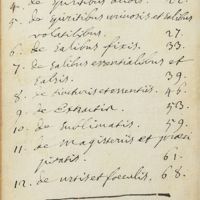 4. de spiritibus acidis. 22.
5. de spiritibus vinosis et oleis
volatilibus. 27.
6. de salibus fixis. 33.
7. de salibus essentialibus et
salsis. 39.
8. de tincturis et essentiis. 46.
9. de Extractis. 53.
10. de sublimatis. 59.
11. de magisteriis et præci
pitatis. 61.
12. de vitris et foeculis. 68.